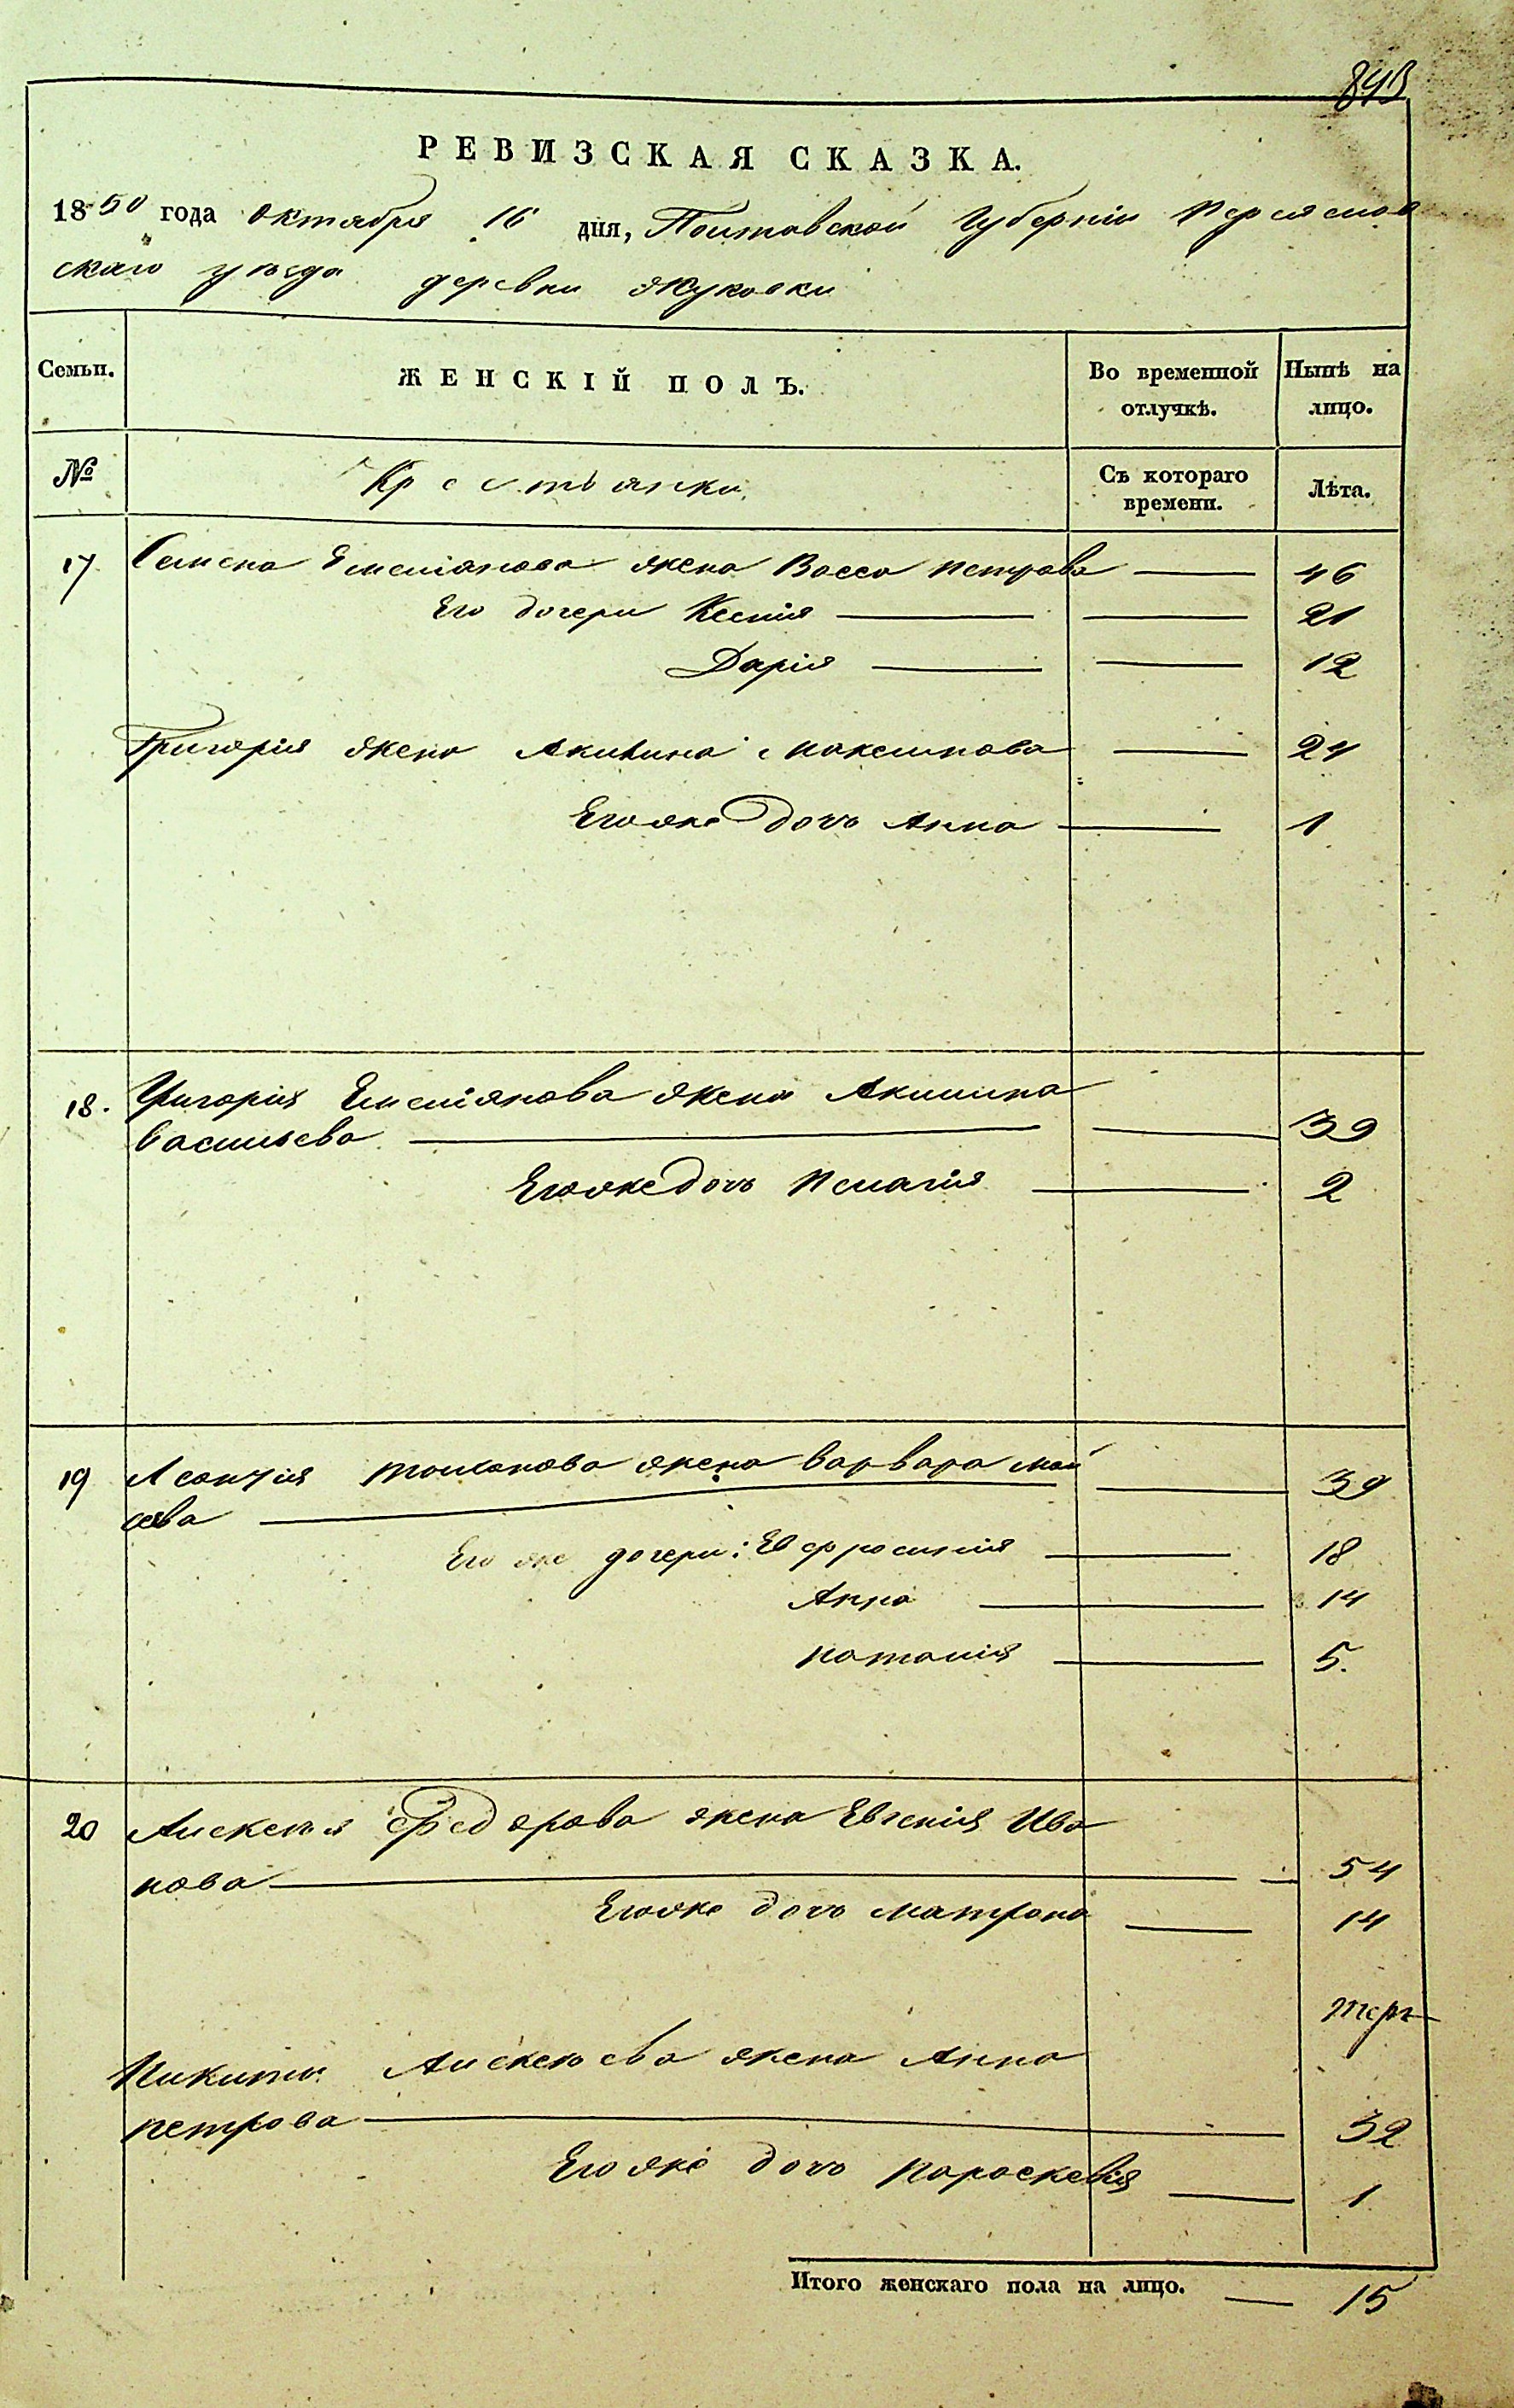 843
РЕВИЗСКАЯ СКАЗКА.
1850 года Октября 16 дня, Полтавской Губерніи Переяслов
скаго уѣзда деревни Жуковки
Семьи. ЖЕНСКІЙ ПОЛЪ. Во временной отлучкѣ. Нынѣ на лицо.
№ Крестьянки Съ котораго времени. Лѣта.
17 Семена Емеліанова жена Васса Петрова — 46
Его дочери Ксенія — 21
Дарія — 12
Григорія жена Акилина Максимова — 24
Его же дочь Анна — 1
18. Григорія Емеліянова жена Акилина
Васильева — 39
Его же дочь Пелагія — 2
19 Леонтія жена Варвара Мои
сеева — 39
Его же дочери: Евфросинія — 18
Анна — 14
Наталія — 5.
20 Алексѣя Федорова жена Евгенія Ива
нова — 54
Его же дочь Матрона — 14
Никиты Алексѣева жена Анна
Петрова — 32
Его же дочь Параскевія — 1
Итого женскаго пола на лицо. — 15